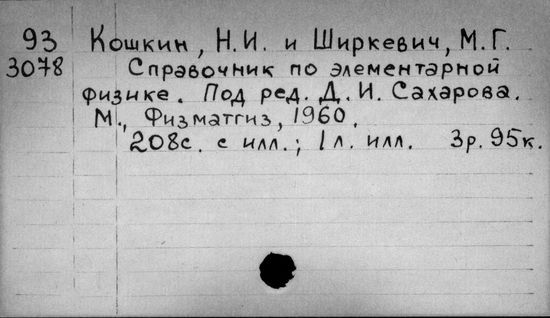 93 Кошкин, Н.И. и Ширкевич, М.Г.
3078 Справочник по элементарной
физике. Под ред. Д.И. Сахарова.
М., Физматгиз, 1960.
208с. с илл.; 1л. илл. 3р. 95к.